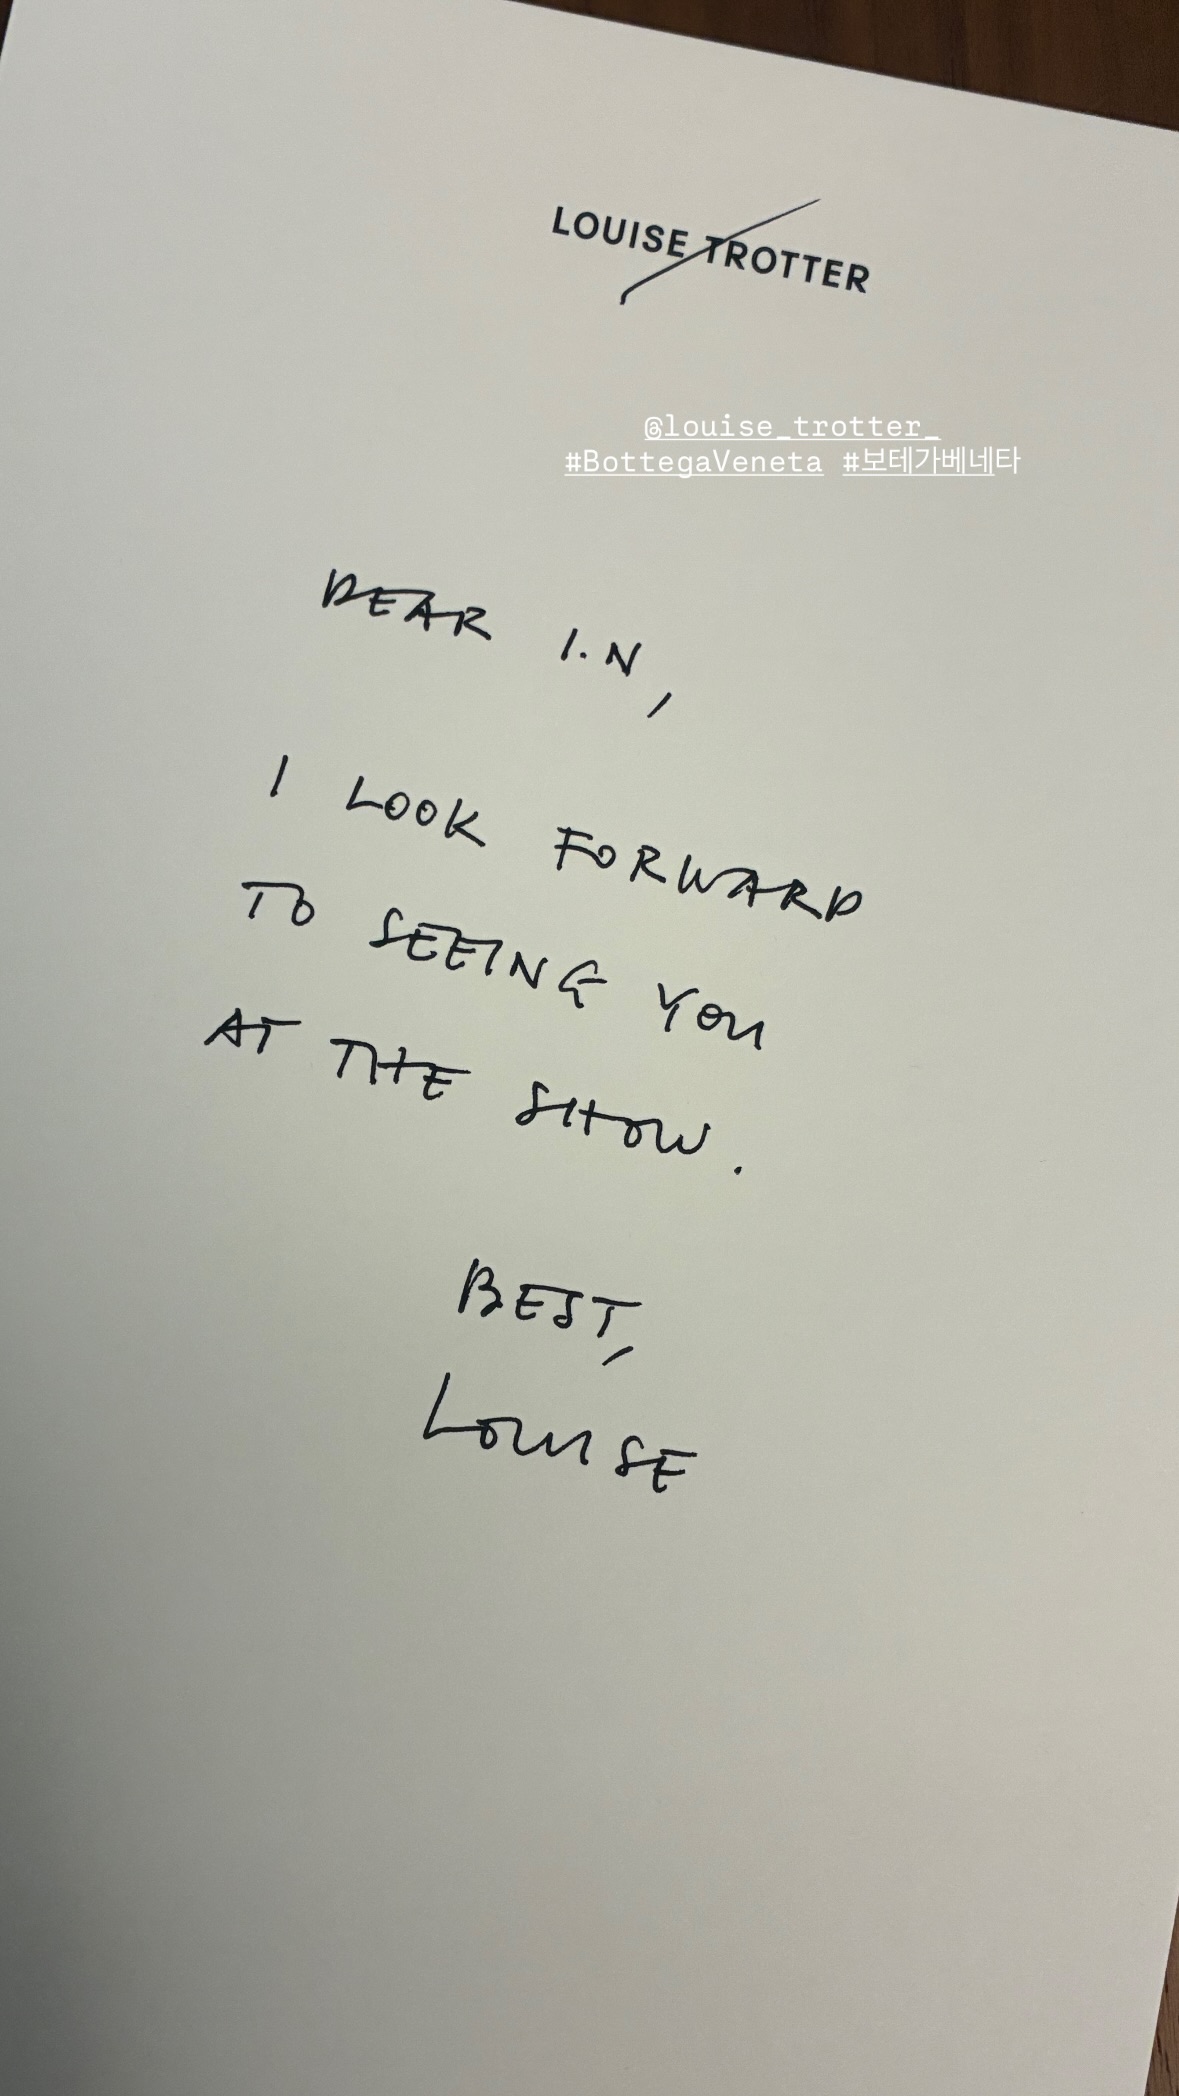 LOUISE TROTTER
@louise_trotter_
#BottegaVeneta #보테가베네타
DEAR I.N,
I LOOK FORWARD
TO SEEING YOU
AT THE SHOW.
BEST,
LOUISE